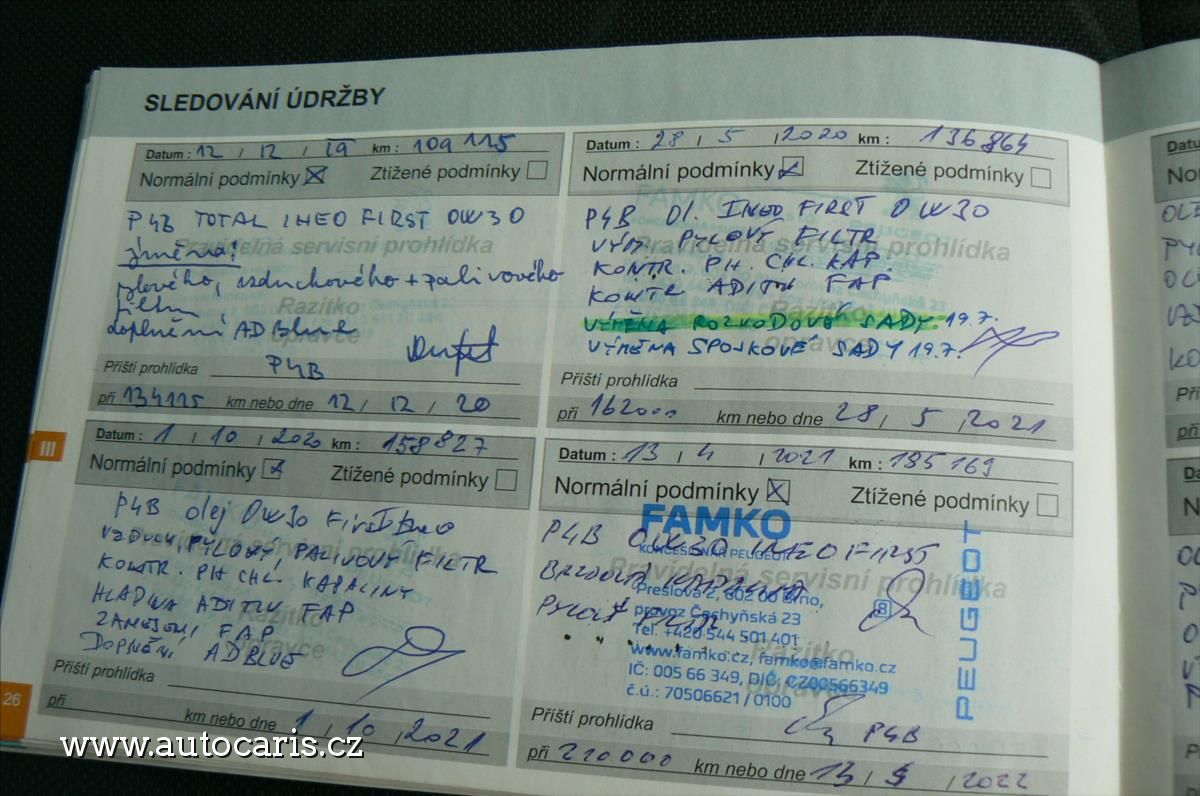 SLEDOVÁNÍ ÚDRŽBY
Datum : 12 / 12 / 19 km : 109 115
Normální podmínky Ztížené podmínky
P4B TOTAL INEO FIRST OW30
Pravidelná servisní prohlídka
, vzduchového + palivového
Razítko
filtru
doplnění AD Blue
opravce
Příští prohlídka P4B
při 134115 km nebo dne 12 / 12 / 20
Datum : 28 / 5 / 2020 km : 136864
Normální podmínky Ztížené podmínky
FAMKO
P4B Ol. INEO FIRST OW30
VÝM. PYLOVÝ FILTR
Pravidelná servisní prohlídka
KONTR. PH. CHL. KAP.
KONTR ADITIV FAP
Razítko
VÝMĚNA ROZVODOVÉ SADY. 19.7.
opravce
VÝMĚNA SPOJKOVÉ SADY 19.7.
Příští prohlídka
při 162000 km nebo dne 28 / 5 / 2021
III
Datum : 1 / 10 / 2020 km : 158827
Normální podmínky Ztížené podmínky
P4B olej OW30 First Ineo
VZDUCH, PYLOVÝ, PALIVOVÝ FILTR
Pravidelná servisní prohlídka
KONTR. PH CHL. KAPALINY
HLADINA ADITIV FAP
Razítko
ZANESENÍ FAP
opravce
DOPNĚNÍ ADBLUE
Příští prohlídka
při km nebo dne 1 / 10 / 2021
Datum : 13 / 4 / 2021 km : 185 169
Normální podmínky Ztížené podmínky
FAMKO
P4B OW30 INEO FIRST
KONCESIONÁŘ PEUGEOT
Pravidelná servisní prohlídka
BRZDOVÁ KAPALINA
Přeslova 2, 602 00 Brno,
PYLOVÝ FILTR
provoz Čechyňská 23
8
Tel. +420 544 501 401
Razítko
www.famko.cz, famko@famko.cz
IČ: 005 66 349, DIČ: CZ00566349
opravce
č.ú.: 70506621 / 0100
PEUGEOT
Příští prohlídka P4B
při 210000 km nebo dne 13 / / 2022
26
www.autocaris.cz